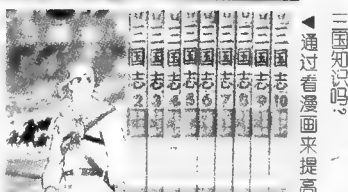 三国知识吗?
◀通过看漫画来提高
三国志10
三国志9
三国志8
三国志7
三国志6
三国志5
三国志4
三国志3
三国志2